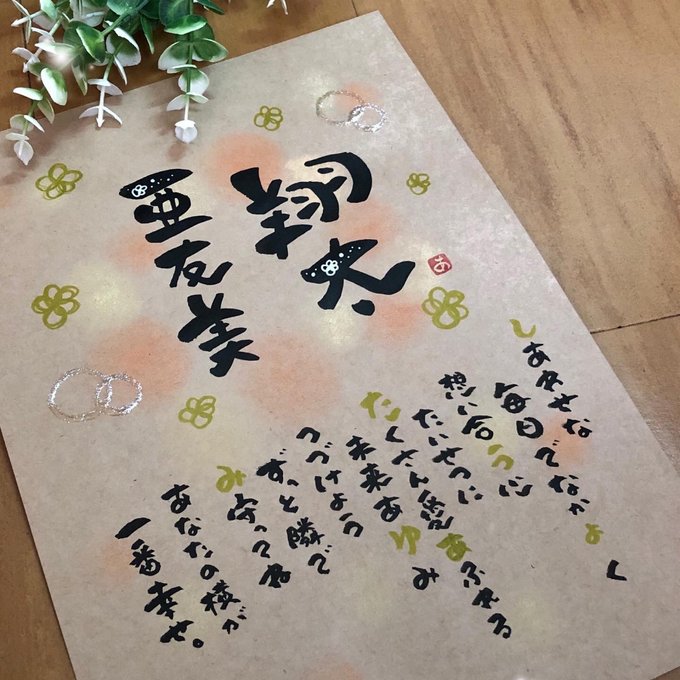 翔太
亜友美
あ
しあわせな
毎日でなかよく
想い合う心
たいせつに
たくさん愛あふれる
未来あゆみ
つづけよう
ずっと隣で
み守ってね
あなたの横が
一番幸せ。